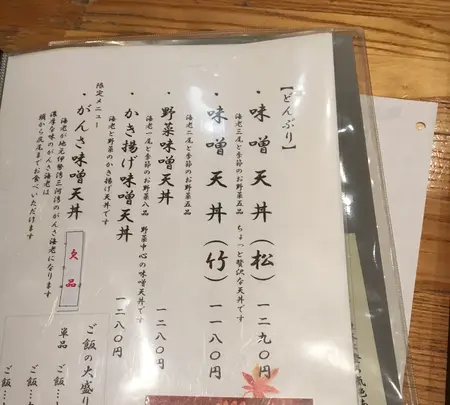 【どんぶり】
・味噌天丼(松) 一二九〇円
海老三尾と季節のお野菜五品 ちょっと贅沢な天丼です
・味噌天丼(竹) 一一八〇円
海老二尾と季節のお野菜五品
・野菜味噌天丼 一二八〇円
海老一尾と季節のお野菜八品 野菜中心の味噌天丼です
・かき揚げ味噌天丼 一二八〇円
海老と野菜のかき揚げ天丼です
限定メニュー
・がんさ味噌天丼 欠品
海老が地元伊勢湾三河湾のがんさ海老になります
濃厚な味のがんさ海老は
頭から尻尾までお食べいただけます
ご飯の大盛り
単品 ご飯
ご飯
ご飯